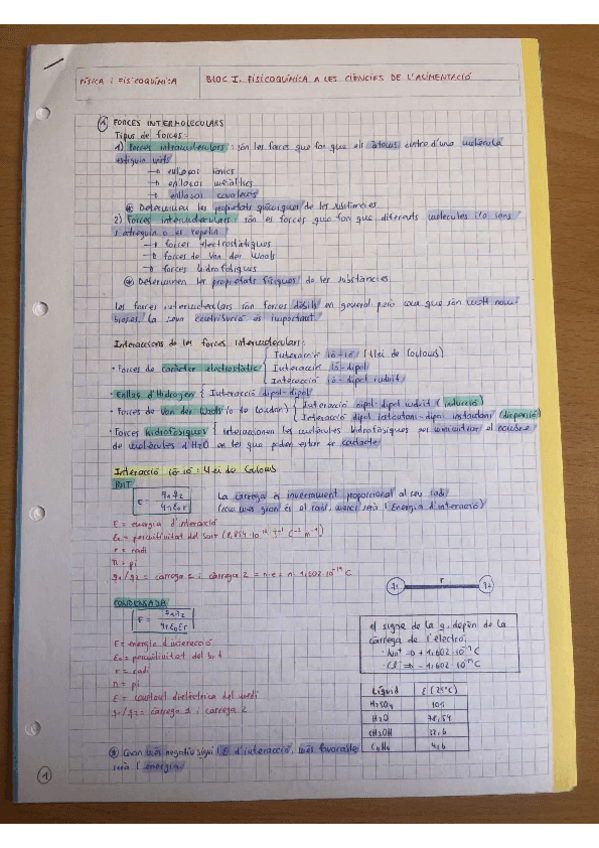 FÍSICA i FISICOQUÍMICA
BLOC I. FISICOQUÍMICA A LES CIÈNCIES DE L'ALIMENTACIÓ
1 FORCES INTERMOLECULARS
Tipus de forces:
1) Forces intramoleculars: són les forces que fan que els àtoms entre d'una molècula
estiguin units
→ enllaços iònics
→ enllaços metàl·lics
→ enllaços covalents
Determinen les propietats químiques de les substàncies
2) Forces intermoleculars: són les forces que fan que diferents molècules i/o ions
s'atreguin o es repelin
→ forces electrostàtiques
→ forces de Van der Waals
→ forces hidrofòbiques
Determinen les propietats físiques de les substàncies.
Les forces intermoleculars són forces dèbils en general però com que són molt nom-
broses, la seva contribució és important.
Interaccions de les forces intermoleculars:
· Forces de caràcter electrostàtic { Interacció ió-ió (Llei de Coulomb)
Interacció ió-dipol
Interacció ió-dipol induït
· Enllaç d'Hidrogen { Interacció dipol-dipol
· Forces de Van der Waals (o de London) { Interacció dipol-dipol induït (inducció)
Interacció dipol instantani-dipol instantani (dispersió)
· Forces hidrofòbiques { Interaccionen les molècules hidrofòbiques per minimitzar el nombre
de molècules d'H2O en les que poden estar en contacte
Interacció ió-ió: Llei de Coulomb
BUIT
E = q1q2 / 4πε0r
La càrrega és inversament proporcional al seu radi
(com més gran és el radi, menor serà l'Energia d'interacció)
E = energia d'interacció
ε0 = permitivitat del buit (8,854·10⁻¹² J⁻¹ C⁻² m⁻¹)
r = radi
π = pi
q1/q2 = càrrega 1 i càrrega 2 = n·e = n·1,602·10⁻¹⁹ C
q1 r q2
CONDENSADA
E = q1q2 / 4πε0εr
E = energia d'interacció
ε0 = permitivitat del buit
r = radi
π = pi
ε = constant dielèctrica del medi
q1/q2 = càrrega 1 i càrrega 2
el signe de la q. depèn de la
càrrega de l'electró.
· Na⁺ ⇒ +1,602·10⁻¹⁹ C
· Cl⁻ ⇒ -1,602·10⁻¹⁹ C
Líquid ε (25ºC)
H2SO4 101
H2O 78,54
CH3OH 32,6
C6H6 4,6
Com més negatiu sigui l'E d'interacció, més favorable
serà l'energia
1